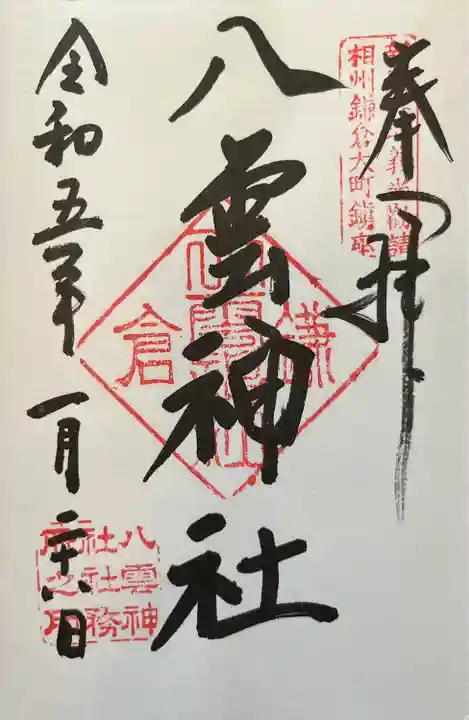 奉拝
相州鎌倉大町鎮座
八雲神社
鎌倉
八雲神
社社務
之印
令和五年一月二十六日